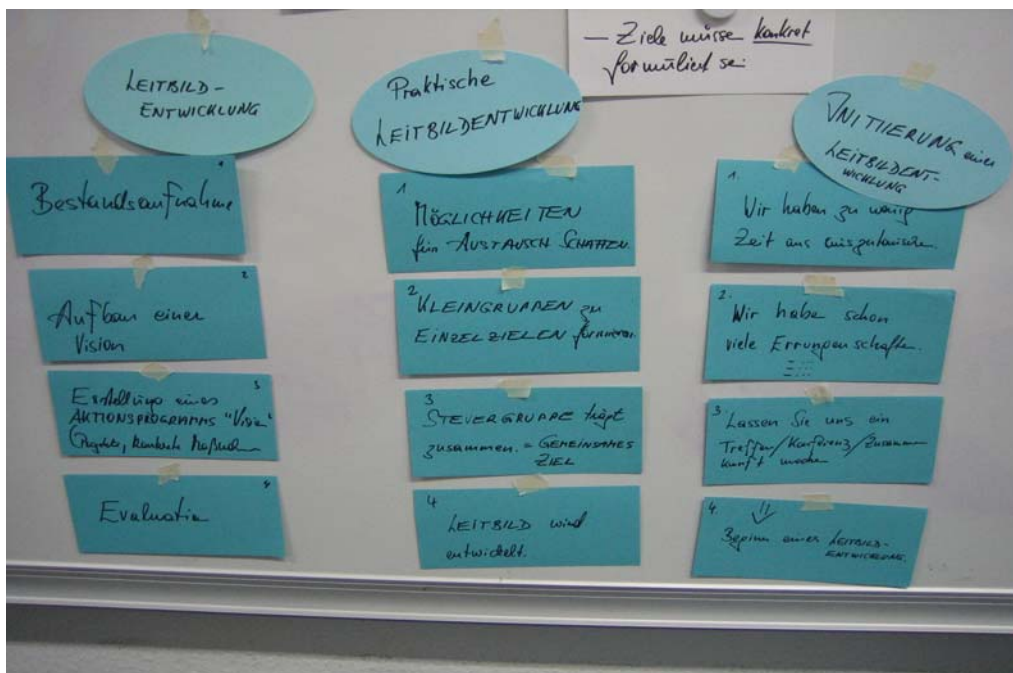 — Ziele müsse konkret
formuliert sei
LEITBILD-
ENTWICKLUNG
1
Bestandsaufnahme
2
Aufbau einer
Vision
3
Erstellung eines
AKTIONSPROGRAMMS "Vision"
(Projekte, konkrete Maßnahmen
4
Evaluation
Praktische
LEITBILDENTWICKLUNG
1
MÖGLICHKEITEN
für AUSTAUSCH SCHAFFEN.
2
KLEINGRUPPEN zu
EINZELZIELEN formieren.
3
STEUERGRUPPE trägt
zusammen. = GEMEINSAMES
ZIEL
4
LEITBILD wird
entwickelt.
INITIIERUNG einer
LEITBILDENT-
WICKLUNG
1.
Wir haben zu wenig
Zeit uns auszutauschen.
2.
Wir habe schon
viele Errungenschaften.
3.
Lassen Sie uns ein
Treffen/Konferenz/Zusammen
kunft machen
4.
Beginn einer LEITBILD-
ENTWICKLUNG.